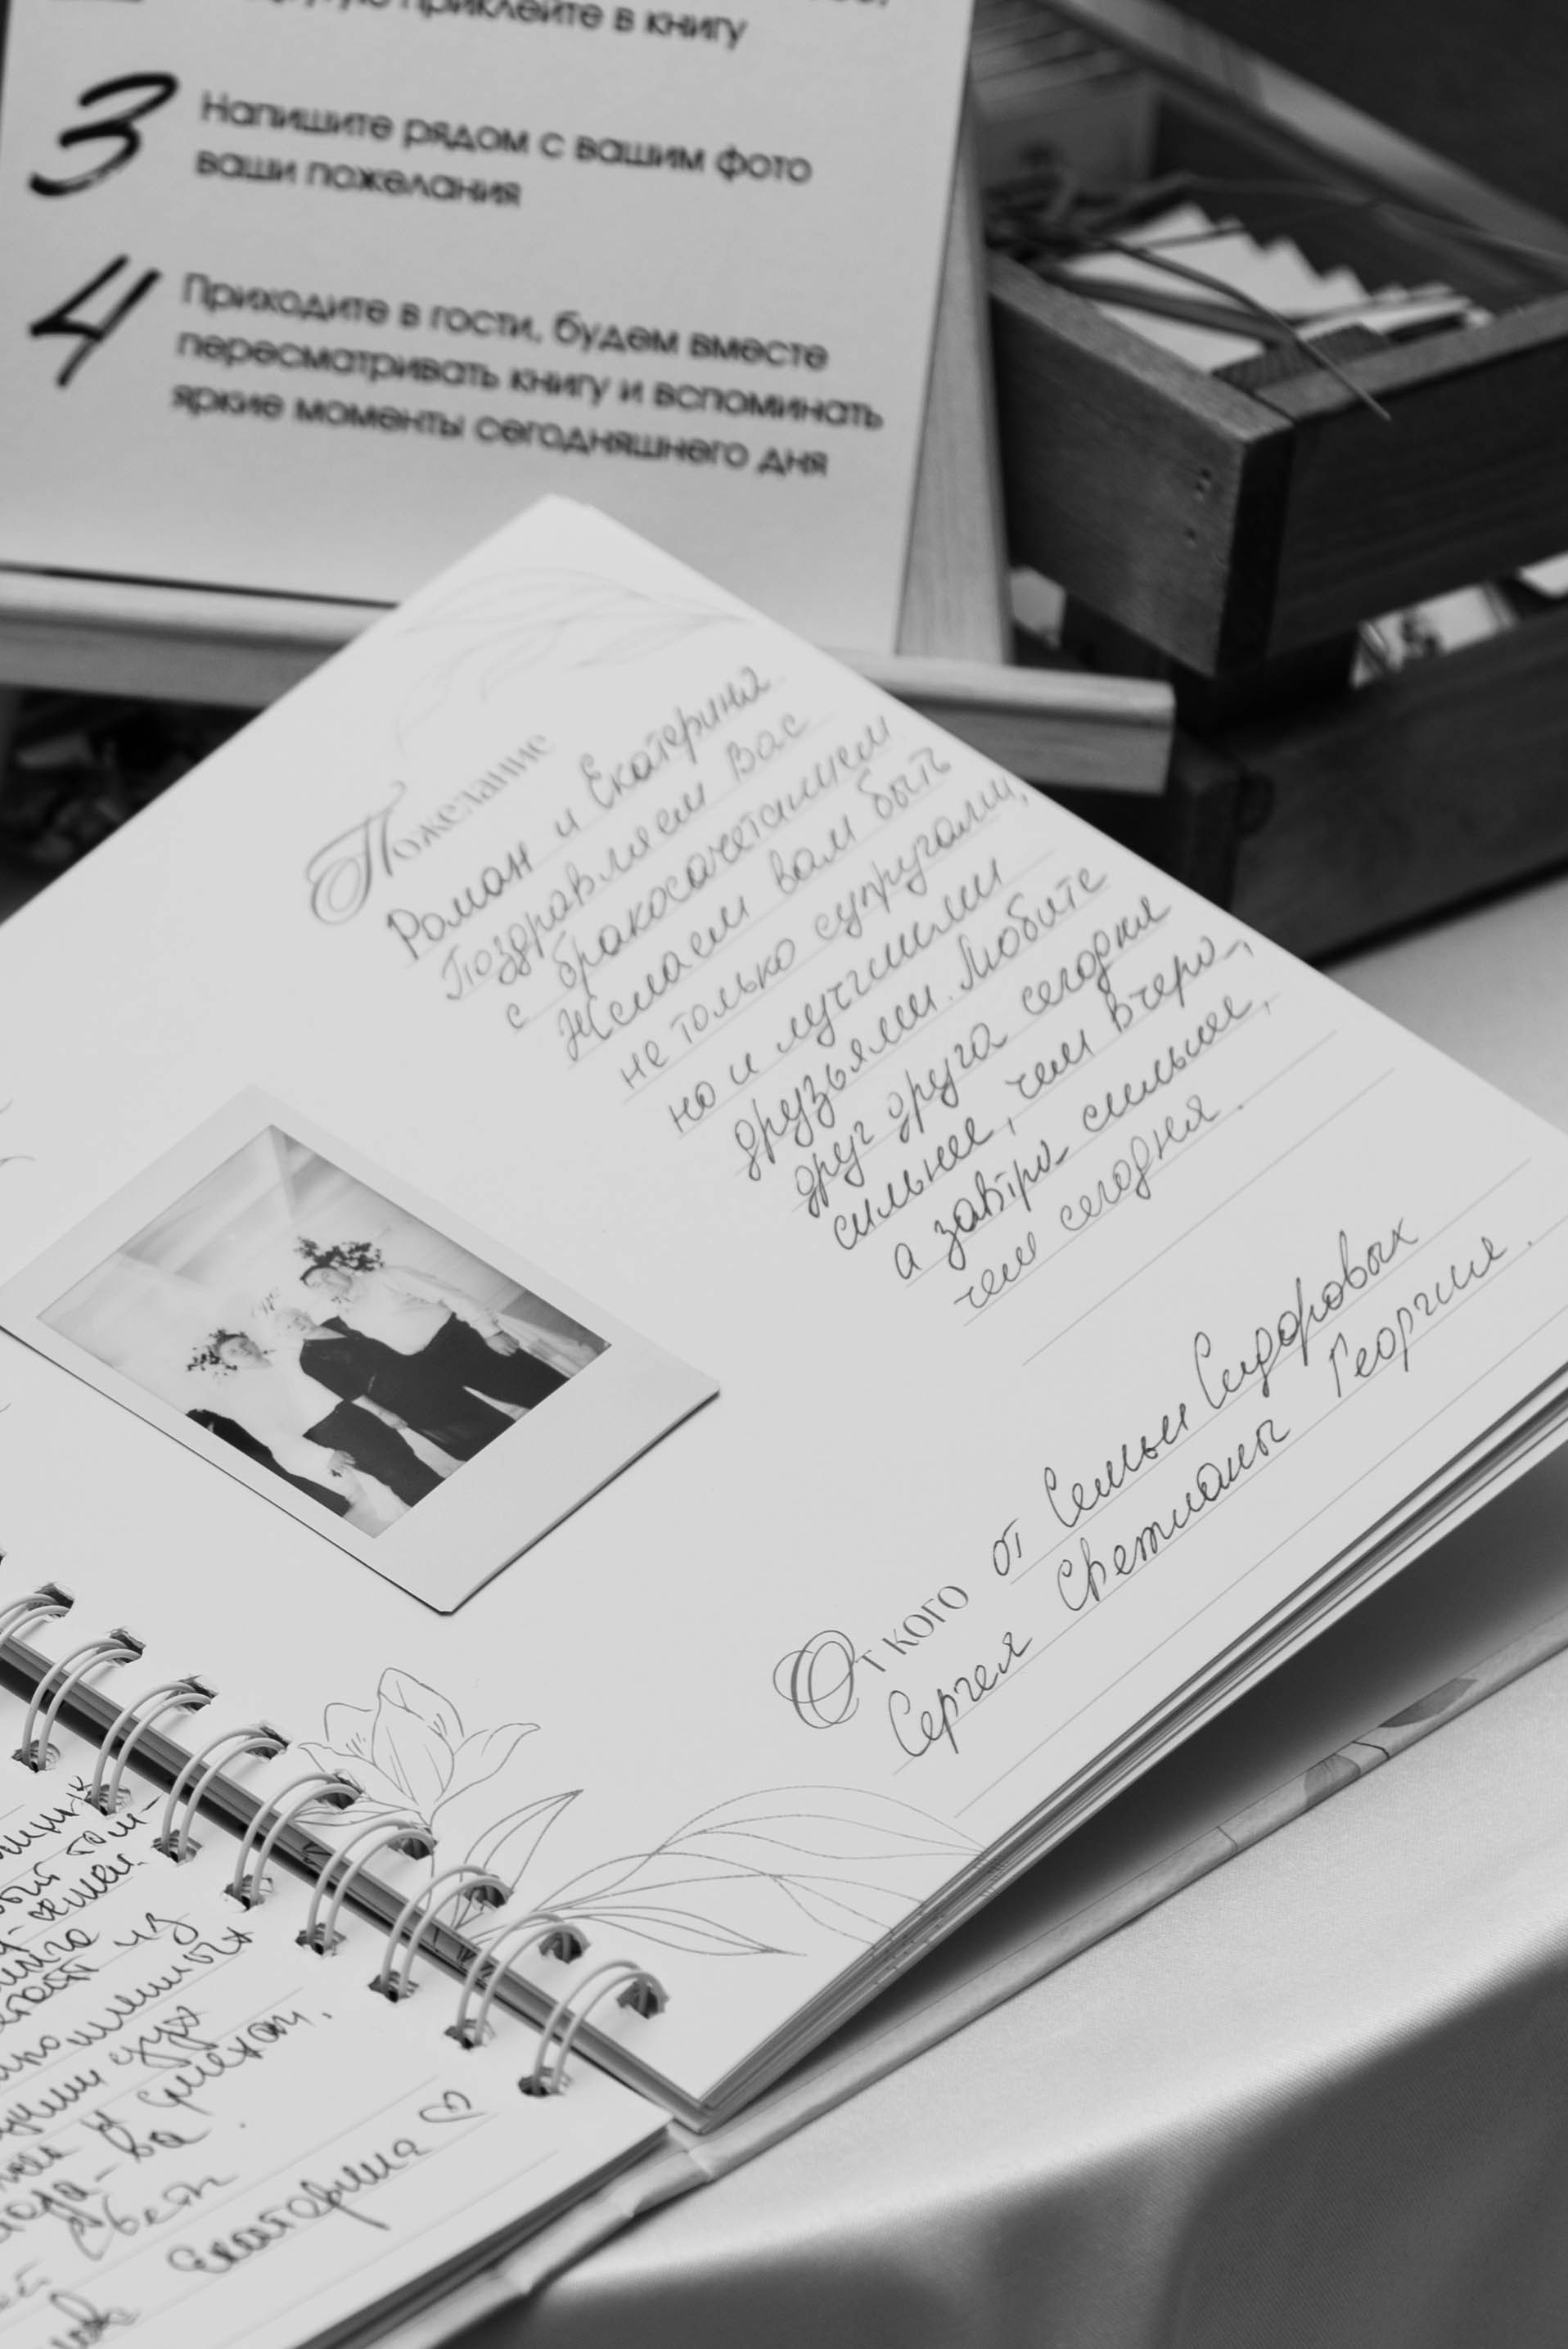 приклейте в книгу
3 Напишите рядом с вашим фото
ваши пожелания
4 Приходите в гости, будем вместе
пересматривать книгу и вспоминать
яркие моменты сегодняшнего дня
Пожелание
Роман и Екатерина
Поздравляем Вас
с бракосочетанием
Желаем вам быть
не только супругами,
но и лучшими
друзьями. Любите
друг друга сегодня
сильнее, чем вчера,
а завтра сильнее,
чем сегодня.
От кого от Семьи Сидоровых
Сергея Светланы Георгия.
из
и смехом.
Екатерина